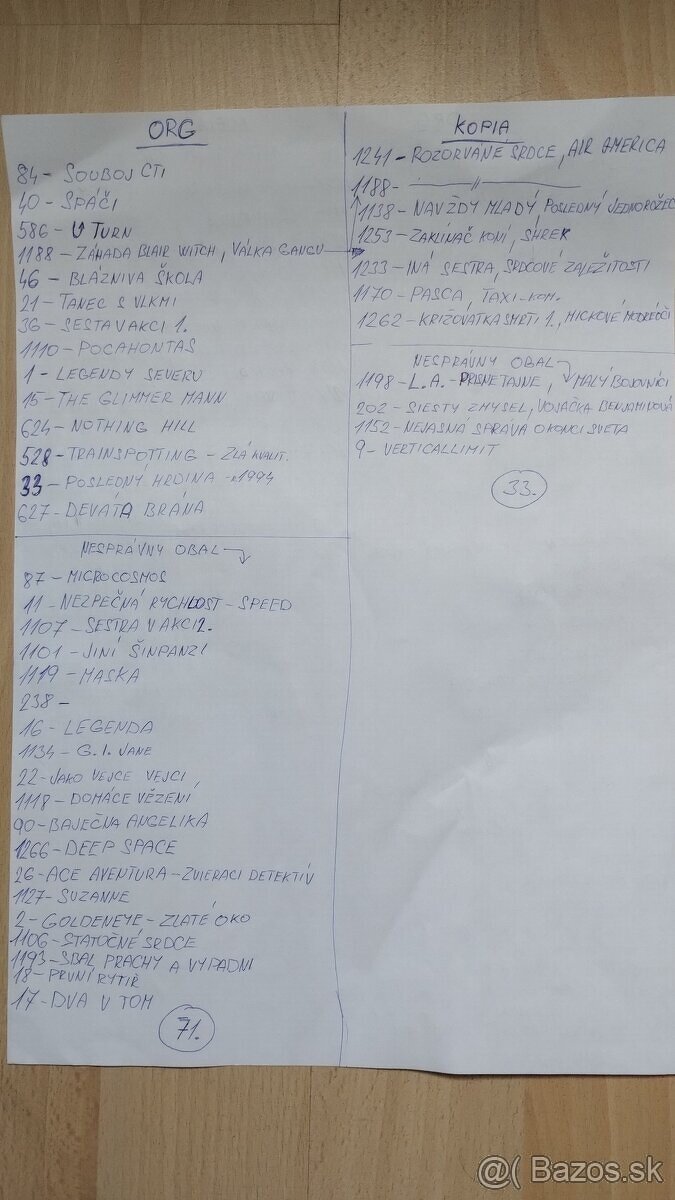 ORG
84 - SOUBOJ CTI
40 - SPÁČI
586 - U TURN
1188 - ZÁHADA BLAIR WITCH, VÁLKA GANGU
46 - BLÁZNIVA ŠKOLA
21 - TANEC S VLKMI
36 - SESTA V AKCI 1.
1110 - POCAHONTAS
1 - LEGENDY SEVERU
15 - THE GLIMMER MANN
624 - NOTHING HILL
528 - TRAINSPOTTING - ZLÁ KVALIT.
33 - POSLEDNÝ HRDINA - 1994
627 - DEVÁTÁ BRÁNA
NESPRÁVNY OBAL
87 - MICROCOSMOS
11 - NEZPEČNÁ RYCHLOST - SPEED
1107 - SESTRA V AKCI 2.
1101 - JINÍ ŠINPANZI
1119 - MASKA
238 -
16 - LEGENDA
1134 - G.I. JANE
22 - JAKO VEJCE VEJCI
1118 - DOMÁCE VĚZENÍ
90 - BAJEČNA ANGELIKA
1266 - DEEP SPACE
26 - ACE AVENTURA - ZVIERACI DETEKTÍV
1127 - SUZANNE
2 - GOLDENEYE - ZLATÉ OKO
1106 - STATOČNÉ SRDCE
1193 - SBAL PRACHY A VYPADNI
18 - PRVNÍ RYTIŘ
17 - DVA V TOM
71.
KOPIA
1241 - ROZORVÁNE SRDCE, AIR AMERICA
1188 - -----//-----
1138 - NAVŽDY MLADÝ, POSLEDNÝ JEDNOROŽEC
1253 - ZAKLÍNAČ KONÍ, SHREK
1233 - INÁ SESTRA, SRDCOVÉ ZALEŽITOSTI
1170 - PASCA, TAXI-KOM.
1262 - KRIŽOVATKA SMRTI 1., MICKOVÉ MODROČI
NESPRÁVNY OBAL
1198 - L.A. - PRISNE TAJNE, MALÝ BOJOVNÍCI
202 - SIESTY ZMYSEL, VOJAČKA BENJAMINOVÁ
1152 - NEJASNÁ SPRÁVA O KONCI SVETA
9 - VERTICALLIMIT
33.
@( Bazos.sk